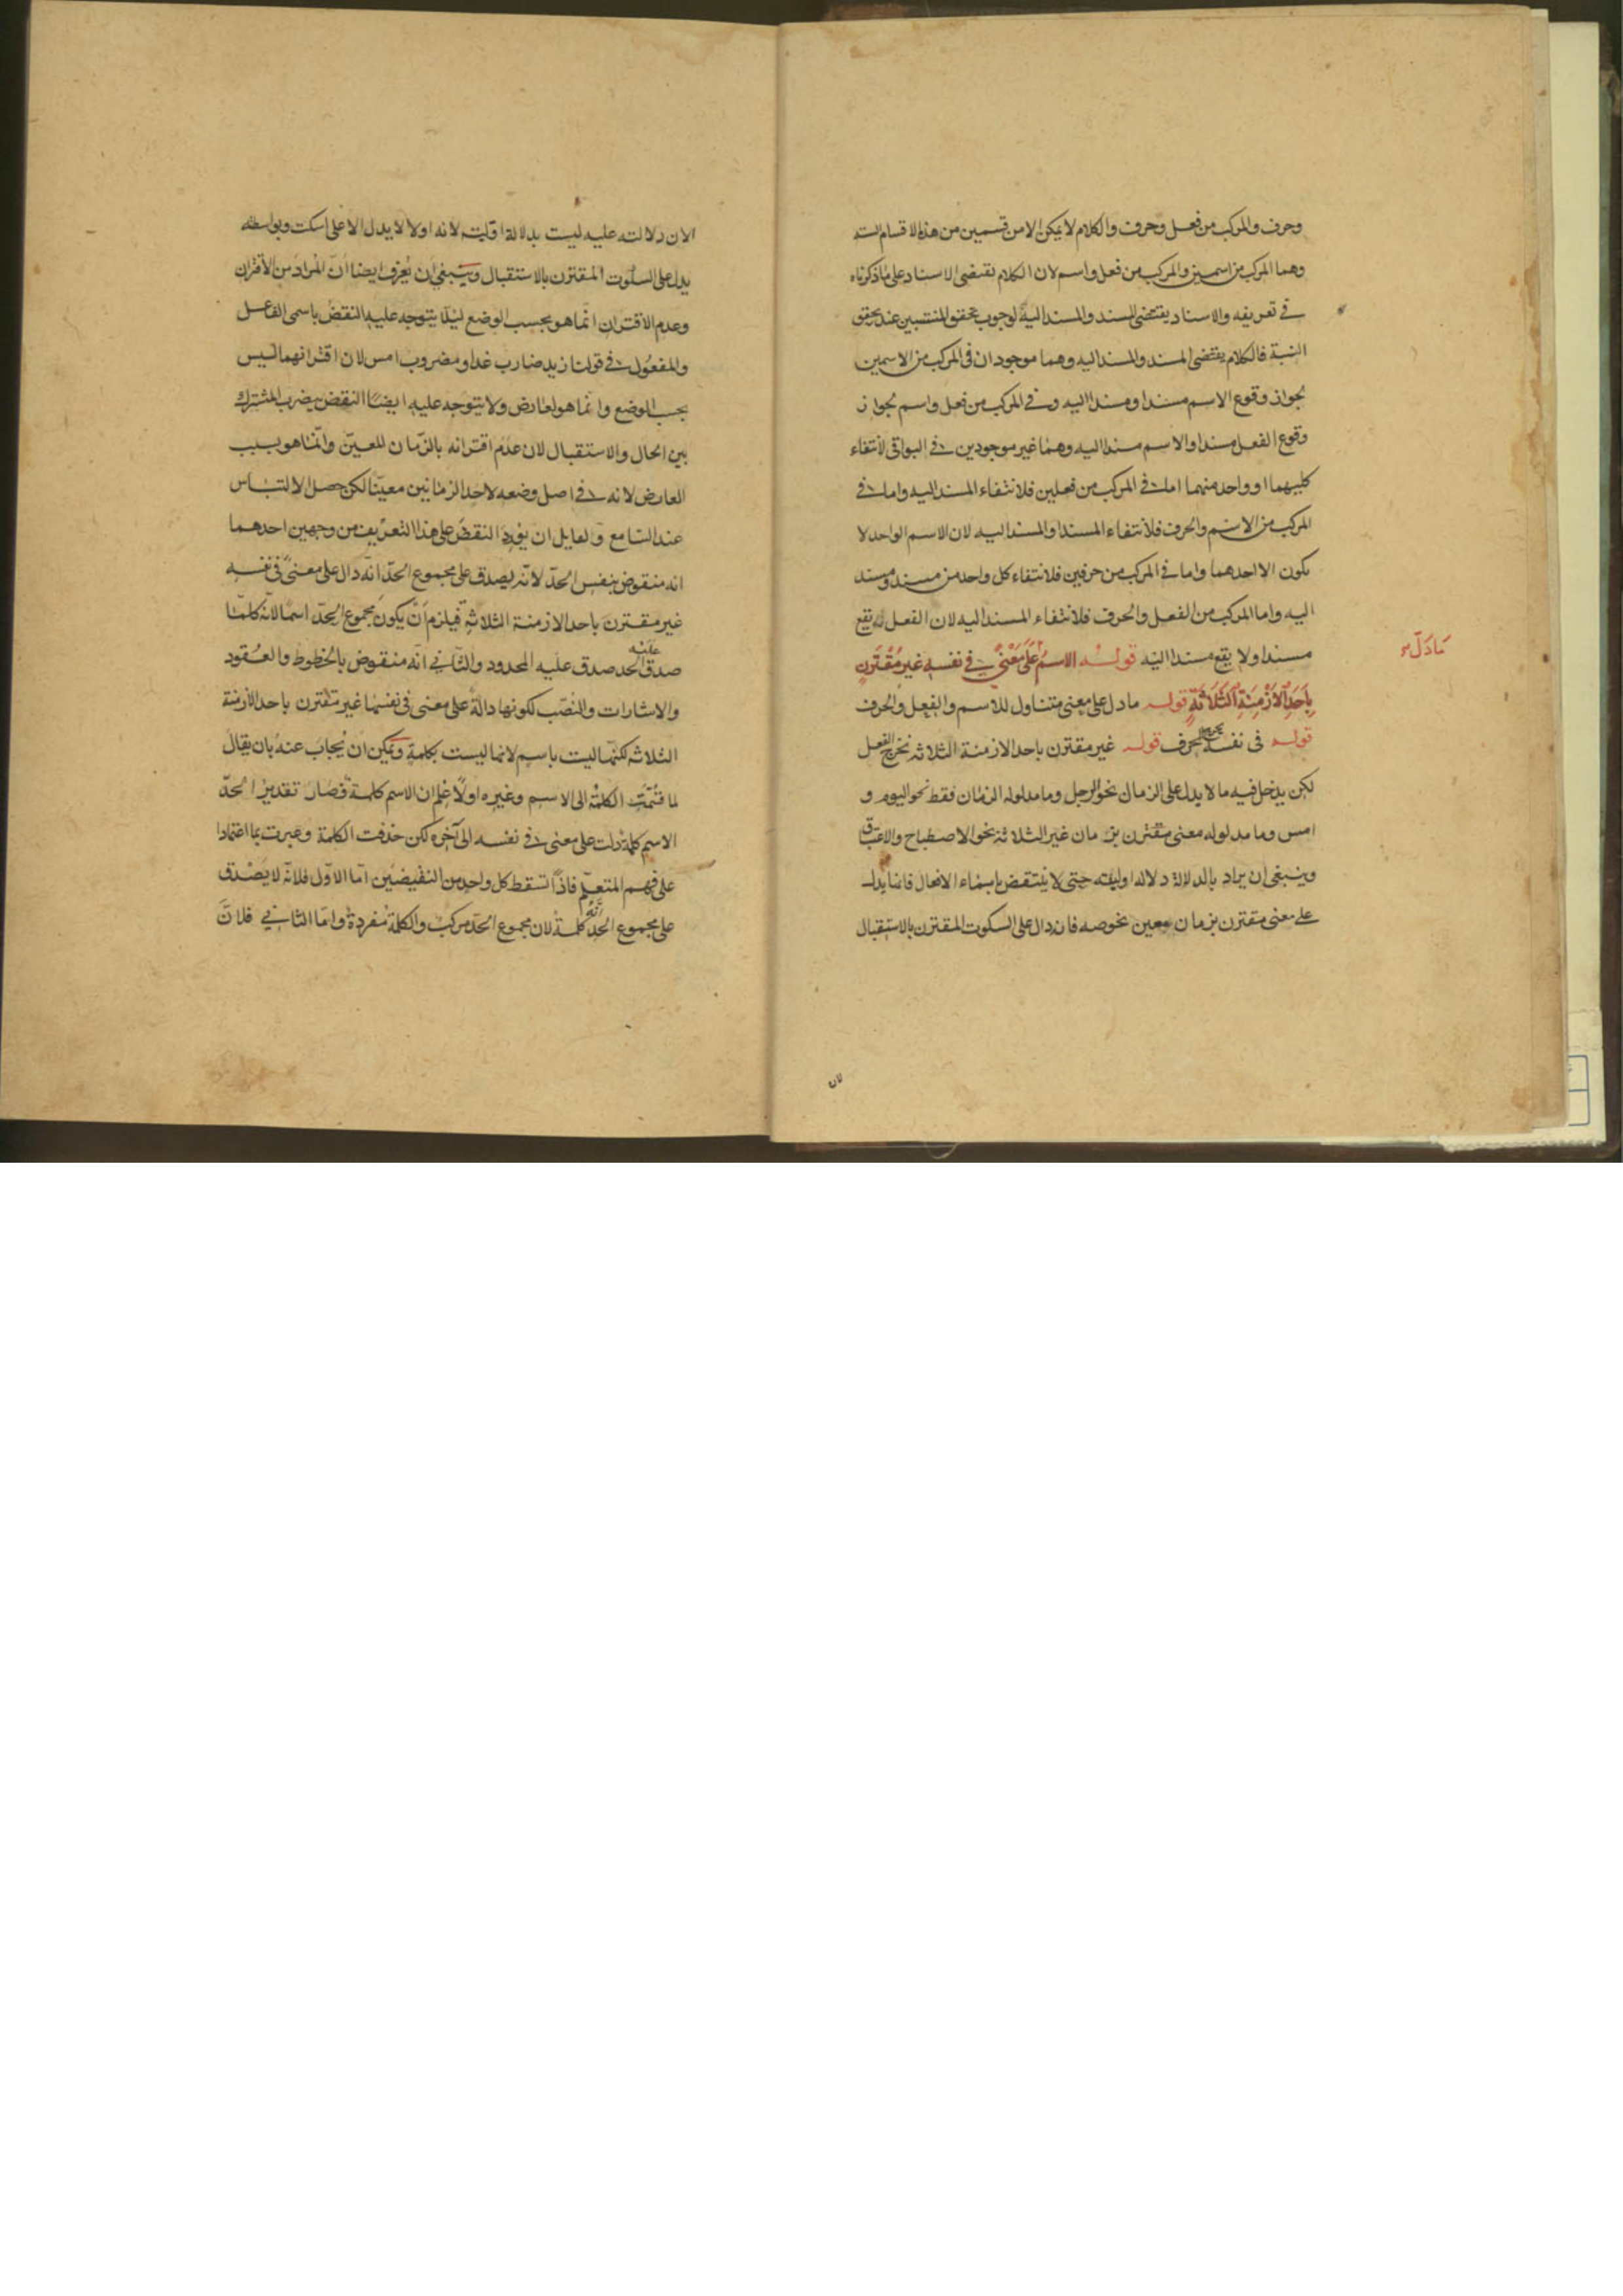 وحرف والمركب من فعل وحرف والكلام لا يمكن الا من قسمين من هذه الاقسام الستة
وهما المركب من اسمين والمركب من فعل واسم لان الكلام تقتضى الاسناد على ما ذكرناه
فى تعريفه والاسناد يقتضى المسند والمسند اليه لوجوب تحقق المنتسبين عند تحقق
النسبة فالكلام يقتضى المسند والمسند اليه وهما موجودان فى المركب من الاسمين
لجواز وقوع الاسم مسندا ومسندا اليه وفى المركب من فعل واسم لجواز
وقوع الفعل مسندا والاسم مسندا اليه وهما غير موجودين فى البواقى لانتفاء
كليهما او واحد منهما اما فى المركب من فعلين فلانتفاء المسند اليه واما فى
المركب من الاسم والحرف فلانتفاء المسند او المسند اليه لان الاسم الواحد لا
يكون الا احدهما واما فى المركب من حرفين فلانتفاء كل واحد من مسند ومسند
اليه واما المركب من الفعل والحرف فلانتفاء المسند اليه لان الفعل يقع
مسندا ولا يقع مسندا اليه قوله الاسم عَلَى مَعْنًى فى نفسه غير مُقْتَرِنٍ
مَادَلّ
بِاَحَدِ الاَزْمِنَةِ الثَّلَاثَةِ قوله مادل على معنى متناول للاسم والفعل والحرف
قوله فى نفسه يخرج الحرف قوله غير مقترن باحد الازمنة الثلاثة يخرج الفعل
لكن يدخل فيه ما لا يدل على الزمان نحو الرجل وما مدلوله الزمان فقط نحو اليوم و
امس وما مدلوله معنى مقترن بزمان غير الثلاثة نحو الاصطباح والاغتباق
وينبغى ان يراد بالدلالة دلالة اولية حتى لا ينتقض باسماء الافعال فانها يدل
على معنى مقترن بزمان معين نحو صه فانه دال على السكوت المقترن بالاستقبال
لان
الا ان دلالته عليه ليست بدلالة اولية لانه اولا لا يدل الا على اسكت وبواسطته
يدل على السكوت المقترن بالاستقبال وينبغى ان يُعرف ايضا ان المراد من الاقتران
وعدم الاقتران انما هو بحسب الوضع ليلا يتوجه عليه النقض باسمى الفاعل
والمفعول فى قولنا زيد ضارب غدا ومضروب امس لان اقترانهما ليس
بحسب الوضع وانما هو لعارض ولا يتوجه عليه ايضًا النقض بيضرب المشترك
بين الحال والاستقبال لان عدم اقترانه بالزمان المعين وانما هو بسبب
العارض لانه فى اصل وضعه لاحد الزمانين معينًا لكن حصل الالتباس
عند السامع ولقايل ان يورد النقض على هذا التعريف من وجهين احدهما
انه منقوض بنفس الحد لانه يصدق على مجموع الحد انه دال على معنى فى نفسه
غير مقترن باحد الازمنة الثلاثة فيلزم ان يكون مجموع الحد اسما لانه كلما
صدق عليه الحد صدق عليه المحدود والثانى انه منقوض بالخطوط والعقود
والاشارات والنصب لكونها دالة على معنى فى نفسها غير مقترن باحد الازمنة
الثلاثة لكنها ليست باسم لانها ليست بكلمة ويمكن ان يُجاب عنه بان يقال
لما قسمت الكلمة الى الاسم وغيره اولا علم ان الاسم كلمة فصار تقدير الحد
الاسم كلمة دلت على معنى فى نفسه الى آخره لكن حذفت الكلمة وعبرت بما اعتمادا
على فهم المتعلم فاذًا تسقط كل واحد من النقيضين اما الاول فلانه لا يصدق
على مجموع الحد انه كلمة لان مجموع الحد مركب والكلمة مفردة واما الثانى فلان